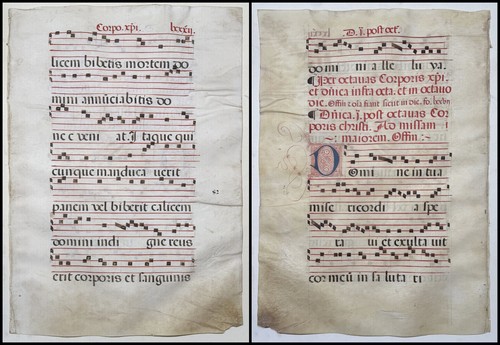 Corpo. xpi. lxxxii.
licem bibetis mortem do
mini annūciabitis do
ne c veni at. Itaque qui
cunque manduca verit
panem vel biberit calicem
domini indi gne reus
erit corporis et sanguinis
D. j. post oct.
do mi ni a lle lu ya.
Per octavas Corporis xpi.
et dñica infra octa. et in octavo
die. Offm̄ ... fiant sicut in die. fo.
Dñica. j. post octavas Cor
poris christi. Ad missam
maiorem. Offm̄:
Domi ne in tua
mise ricordi a spe
ta vi et exulta vit
cor meū in sa luta ri